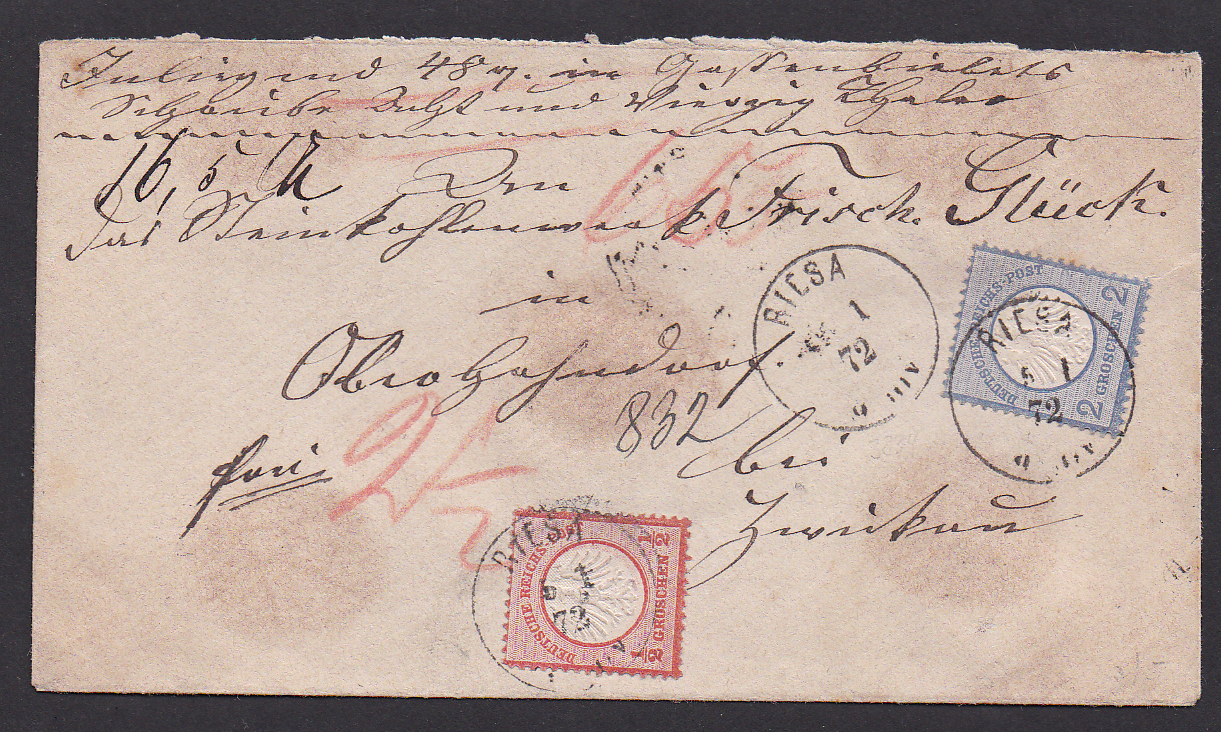 Inliegend 48 in Cassenbillets
Schreibe Acht und Vierzig Thaler
16, 5
An
das Steinkohlenwerk Frisch Glück.
in
Oberhohndorf.
832
bei
Zwickau
frei
2 1/2
RIESA
1
72
RIESA
5 1
72
DEUTSCHE REICHS-POST
2 GROSCHEN 2
RIESA
5 1
72
DEUTSCHE REICHS-
1/2 GROSCHEN 1/2